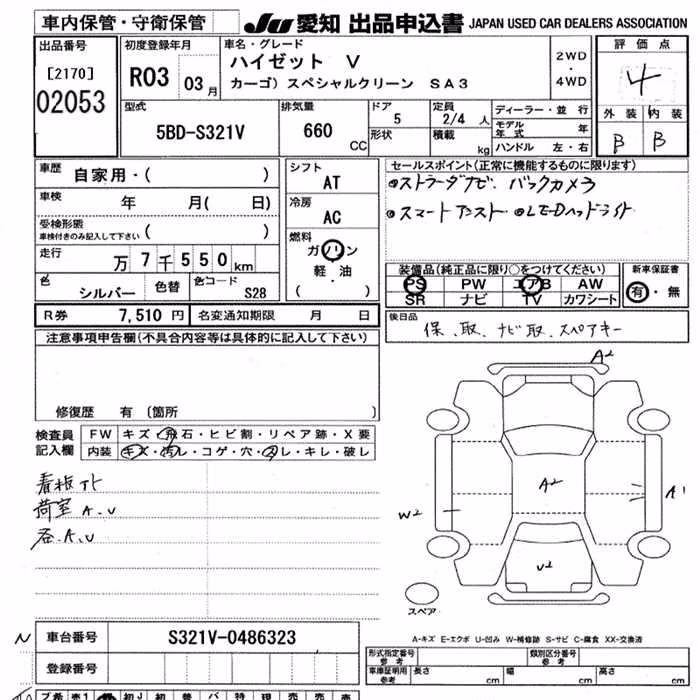 車内保管・守衛保管
JU 愛知 出品申込書 JAPAN USED CAR DEALERS ASSOCIATION
出品番号
[2170]
02053
初度登録年月
R03 03月
車名・グレード
ハイゼット V
カーゴ) スペシャルクリーン SA3
2WD
・
4WD
評価点
4
外装 内装
B B
型式
5BD-S321V
排気量
660 CC
ドア
5
形状
定員
2/4 人
積載 kg
ディーラー・並行
モデル年式 年
ハンドル 左・右
車歴
自家用・( )
車検 年 月( 日)
受検形態
車検付きのみ記入して下さい ( )
走行
万 7千 550 km
色
シルバー
色替
色コード
S28
シフト
AT
冷房
AC
燃料
ガソリン
軽・油
( )
セールスポイント(正常に機能するものに限ります)
●ストラーダナビ、バックカメラ
●スマートアシスト ●LEDヘッドライト
装備品(純正品に限り○をつけてください)
PS PW エアB AW
SR ナビ TV カワシート
新車保証書
有・無
R券 7,510円 名変通知期限 月 日
後日品
保、取、ナビ取、スペアキー
注意事項申告欄(不具合内容等は具体的に記入して下さい)
修復歴 有 〔箇所 〕
検査員
記入欄
FW キズ・飛石・ヒビ割・リペア跡・X要
内装 キズ・汚レ・コゲ・穴・スレ・キレ・破レ
荷室 A.U
各.A.U
A2
A2
A1
W2
U2
スペア
A-キズ E-エクボ U-凹み W-補修跡 S-サビ C-腐食 XX-交換済
N 車台番号 S321V-0486323
登録番号
形式指定番号
参考
類別区分番号
参考
車庫証明用
参考
長さ cm 幅 cm 高さ cm